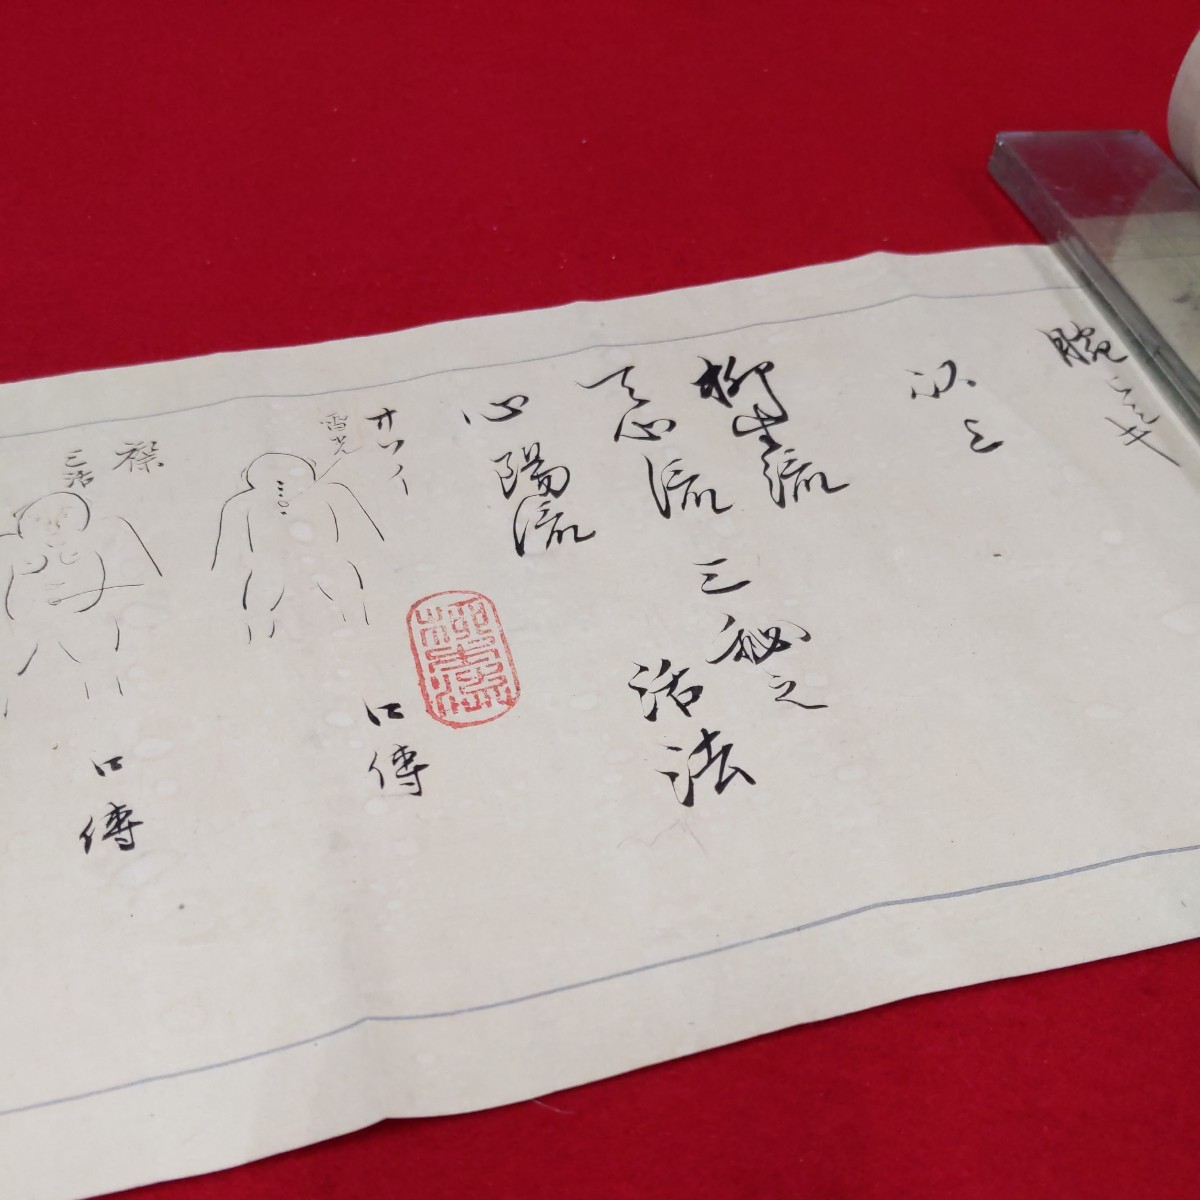 以上
柳生流
天心流
三秘之
活法
心陽流
オソイ
雷光
口傳
襟
三活
口傳